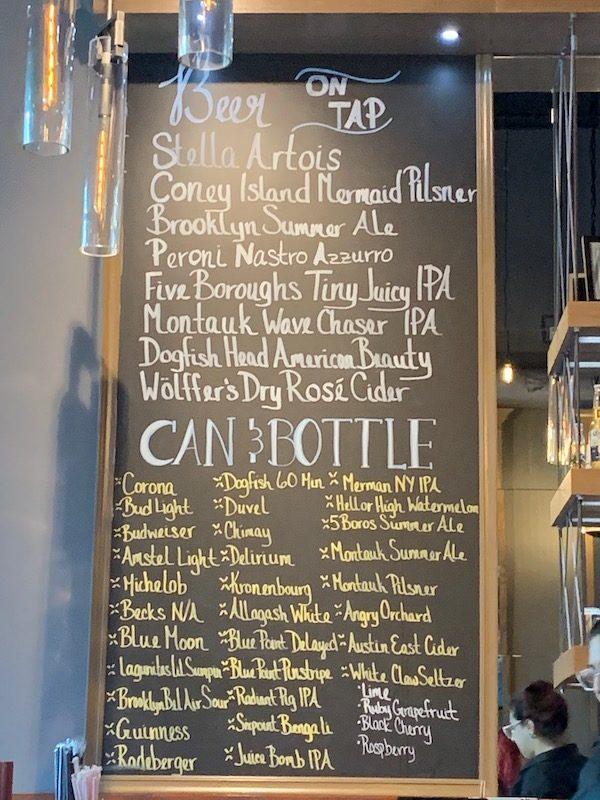 Beer ON TAP
Stella Artois
Coney Island Mermaid Pilsner
Brooklyn Summer Ale
Peroni Nastro Azzurro
Five Boroughs Tiny Juicy IPA
Montauk Wave Chaser IPA
Dogfish Head American Beauty
Wölffer's Dry Rosé Cider
CAN & BOTTLE
Corona
Bud Light
Budweiser
Amstel Light
Michelob
Becks N/A
Blue Moon
Lagunitas Lil Sumpin
Brooklyn Bel Air Sour
Guinness
Radeberger
Dogfish 60 Min
Duvel
Chimay
Delirium
Kronenbourg
Allagash White
Blue Point Delayed
Blue Point Pinstripe
Radiant Pig IPA
Sixpoint Bengali
Juice Bomb IPA
Merman NY IPA
Hell or High Watermelon
5 Boros Summer Ale
Montauk Summer Ale
Montauk Pilsner
Angry Orchard
Austin East Cider
White Claw Seltzer
Lime
Ruby Grapefruit
Black Cherry
Raspberry